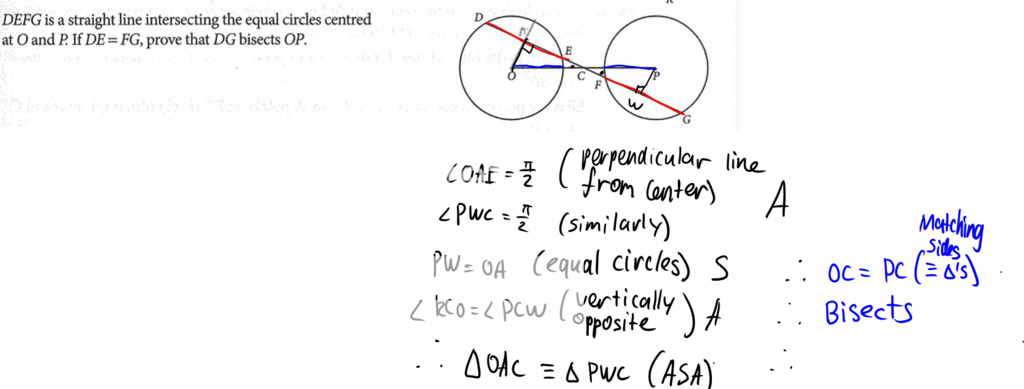 DEFG is a straight line intersecting the equal circles centred
at O and P. If DE = FG, prove that DG bisects OP.
D
E
O
C
F
P
W
G
∠OAE = π/2 (perpendicular line
from center)
A
∠PWC = π/2 (similarly)
PW = OA (equal circles) S
∠ KCO = ∠ PCW (vertically
opposite) A
∴ ΔOAC ≡ Δ PWC (ASA)
Matching
sides
∴ OC = PC (≡ Δ's)
∴ Bisects
∴